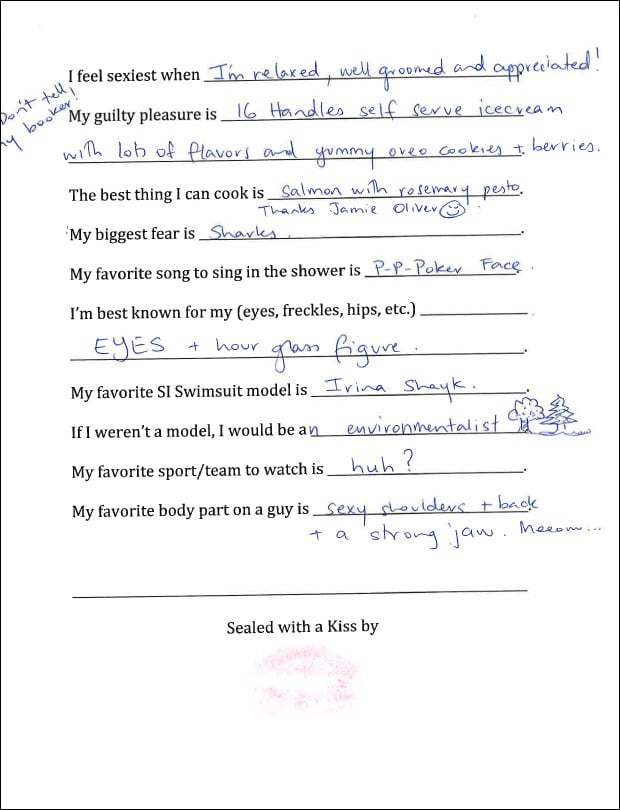 I feel sexiest when I'm relaxed, well groomed and appreciated!
Don't tell
my booker!
My guilty pleasure is 16 Handles self serve icecream
with lots of flavors and yummy oreo cookies + berries.
The best thing I can cook is salmon with rosemary pesto.
Thanks Jamie Oliver☺.
My biggest fear is Sharks.
My favorite song to sing in the shower is P-P-Poker Face.
I'm best known for my (eyes, freckles, hips, etc.)
EYES + hour glass figure.
My favorite SI Swimsuit model is Irina Shayk.
If I weren't a model, I would be an environmentalist
My favorite sport/team to watch is huh?
My favorite body part on a guy is sexy shoulders + back
+ a strong jaw. Meeow...
Sealed with a Kiss by